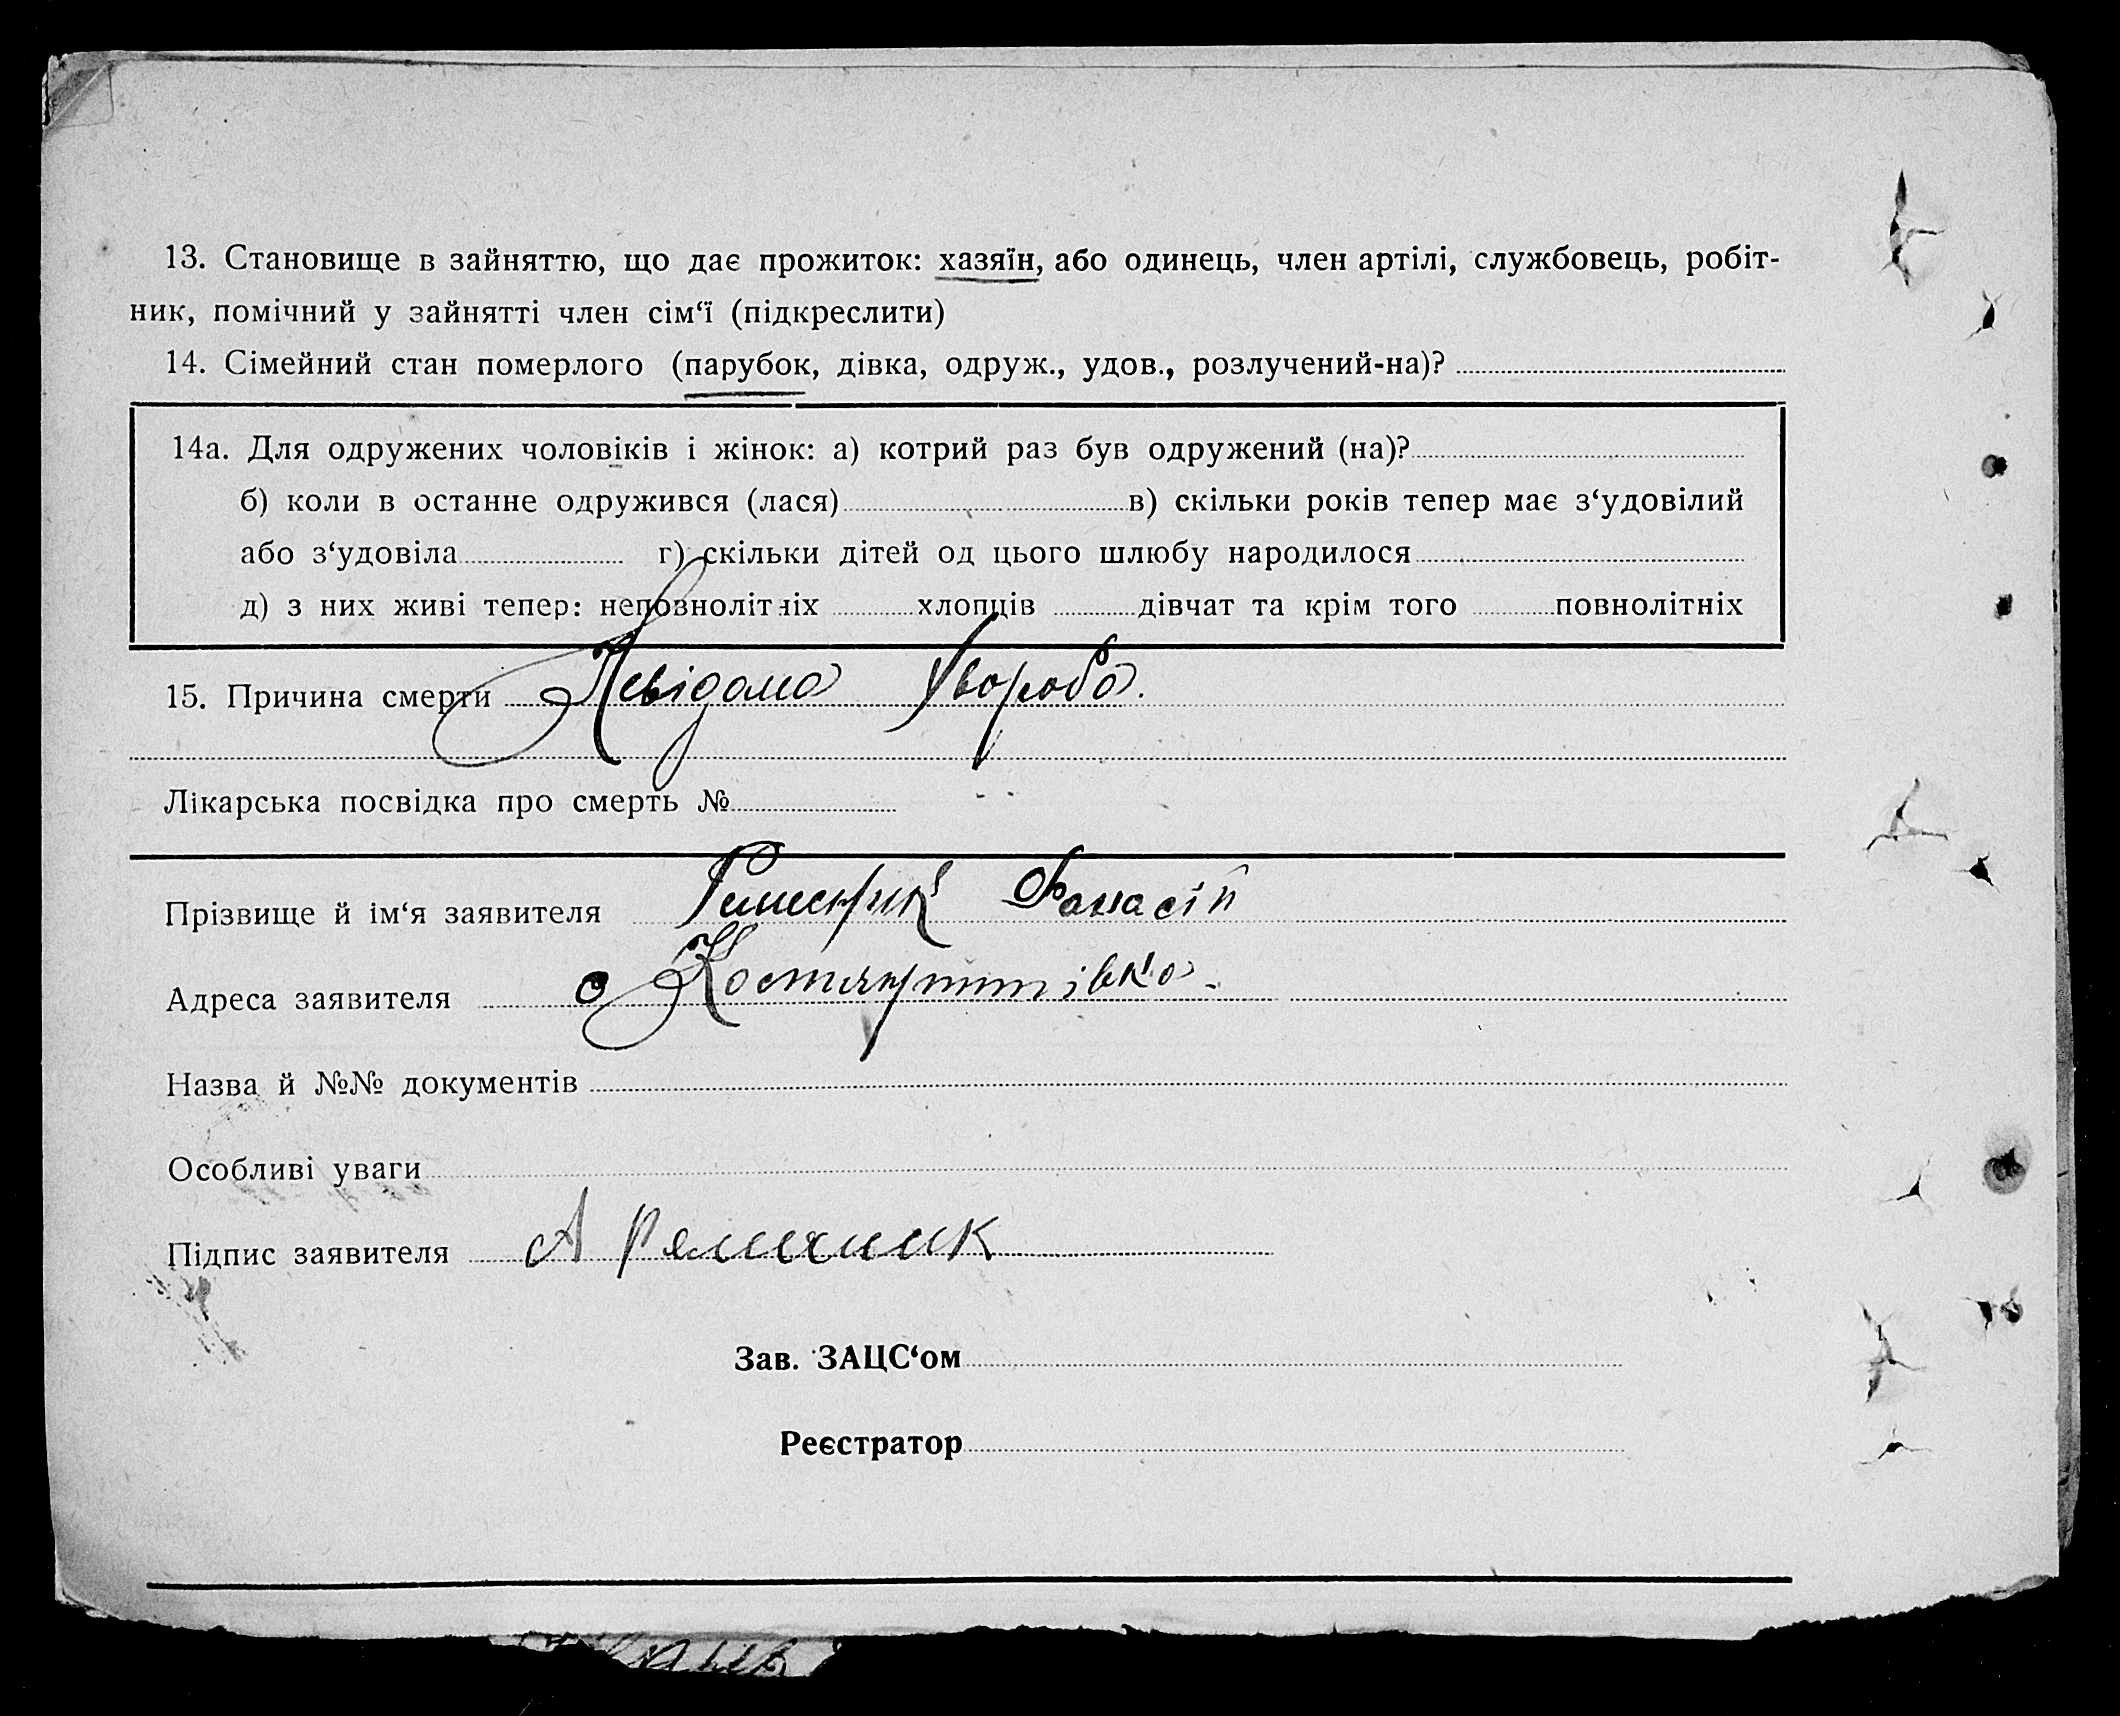 13. Становище в зайняттю, що дає прожиток: хазяїн, або одинець, член артілі, службовець, робіт-
ник, помічний у зайнятті член сім‘ї (підкреслити)
14. Сімейний стан померлого (парубок, дівка, одруж., удов., розлучений-на)?
14а. Для одружених чоловіків і жінок: а) котрий раз був одружений (на)?
б) коли в останне одружився (лася) в) скільки років тепер має з‘удовілий
або з‘удовіла г) скільки дітей од цього шлюбу народилося
д) з них живі тепер: неповнолітніх хлопців дівчат та крім того повнолітніх
15. Причина смерти Невідома хвороба.
Лікарська посвідка про смерть №
Прізвище й ім‘я заявителя Фанасій
Адреса заявителя с
Назва й №№ документів
Особливі уваги
Підпис заявителя А
Зав. ЗАЦС‘ом
Реєстратор